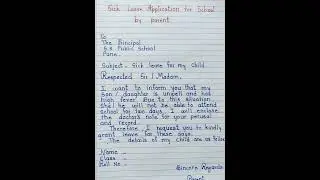 Sick Leave Application for School
by parent
To
The Principal
S.K Public School
Pune.
Subject- Sick leave for my child
Respected Sir / Madam.
I want to inform you that my
Son / daughter is unwell and had
high fever. Due to this situation
She/ he will not be able to attend
school for two days. I will enclose
the doctor's note for your perusal
and record.
Therefore, I request you to kindly
grant leave for these days.
The details of my child are as follow
Name -
Class -
Roll No -
Sincere Regards
Parent